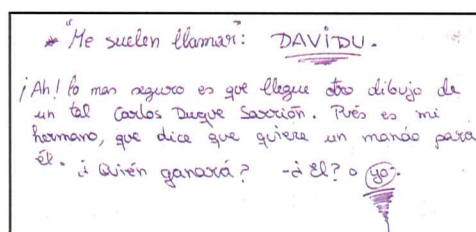 * "Me suelen llamar": DAViDU.
¡Ah! lo mas seguro es que llegue otro dibujo de
un tal Carlos Duque Sarrión. Pués es mi
hermano, que dice que quiere un mando para
él. ¿Quién ganará? -¿El? o yo.